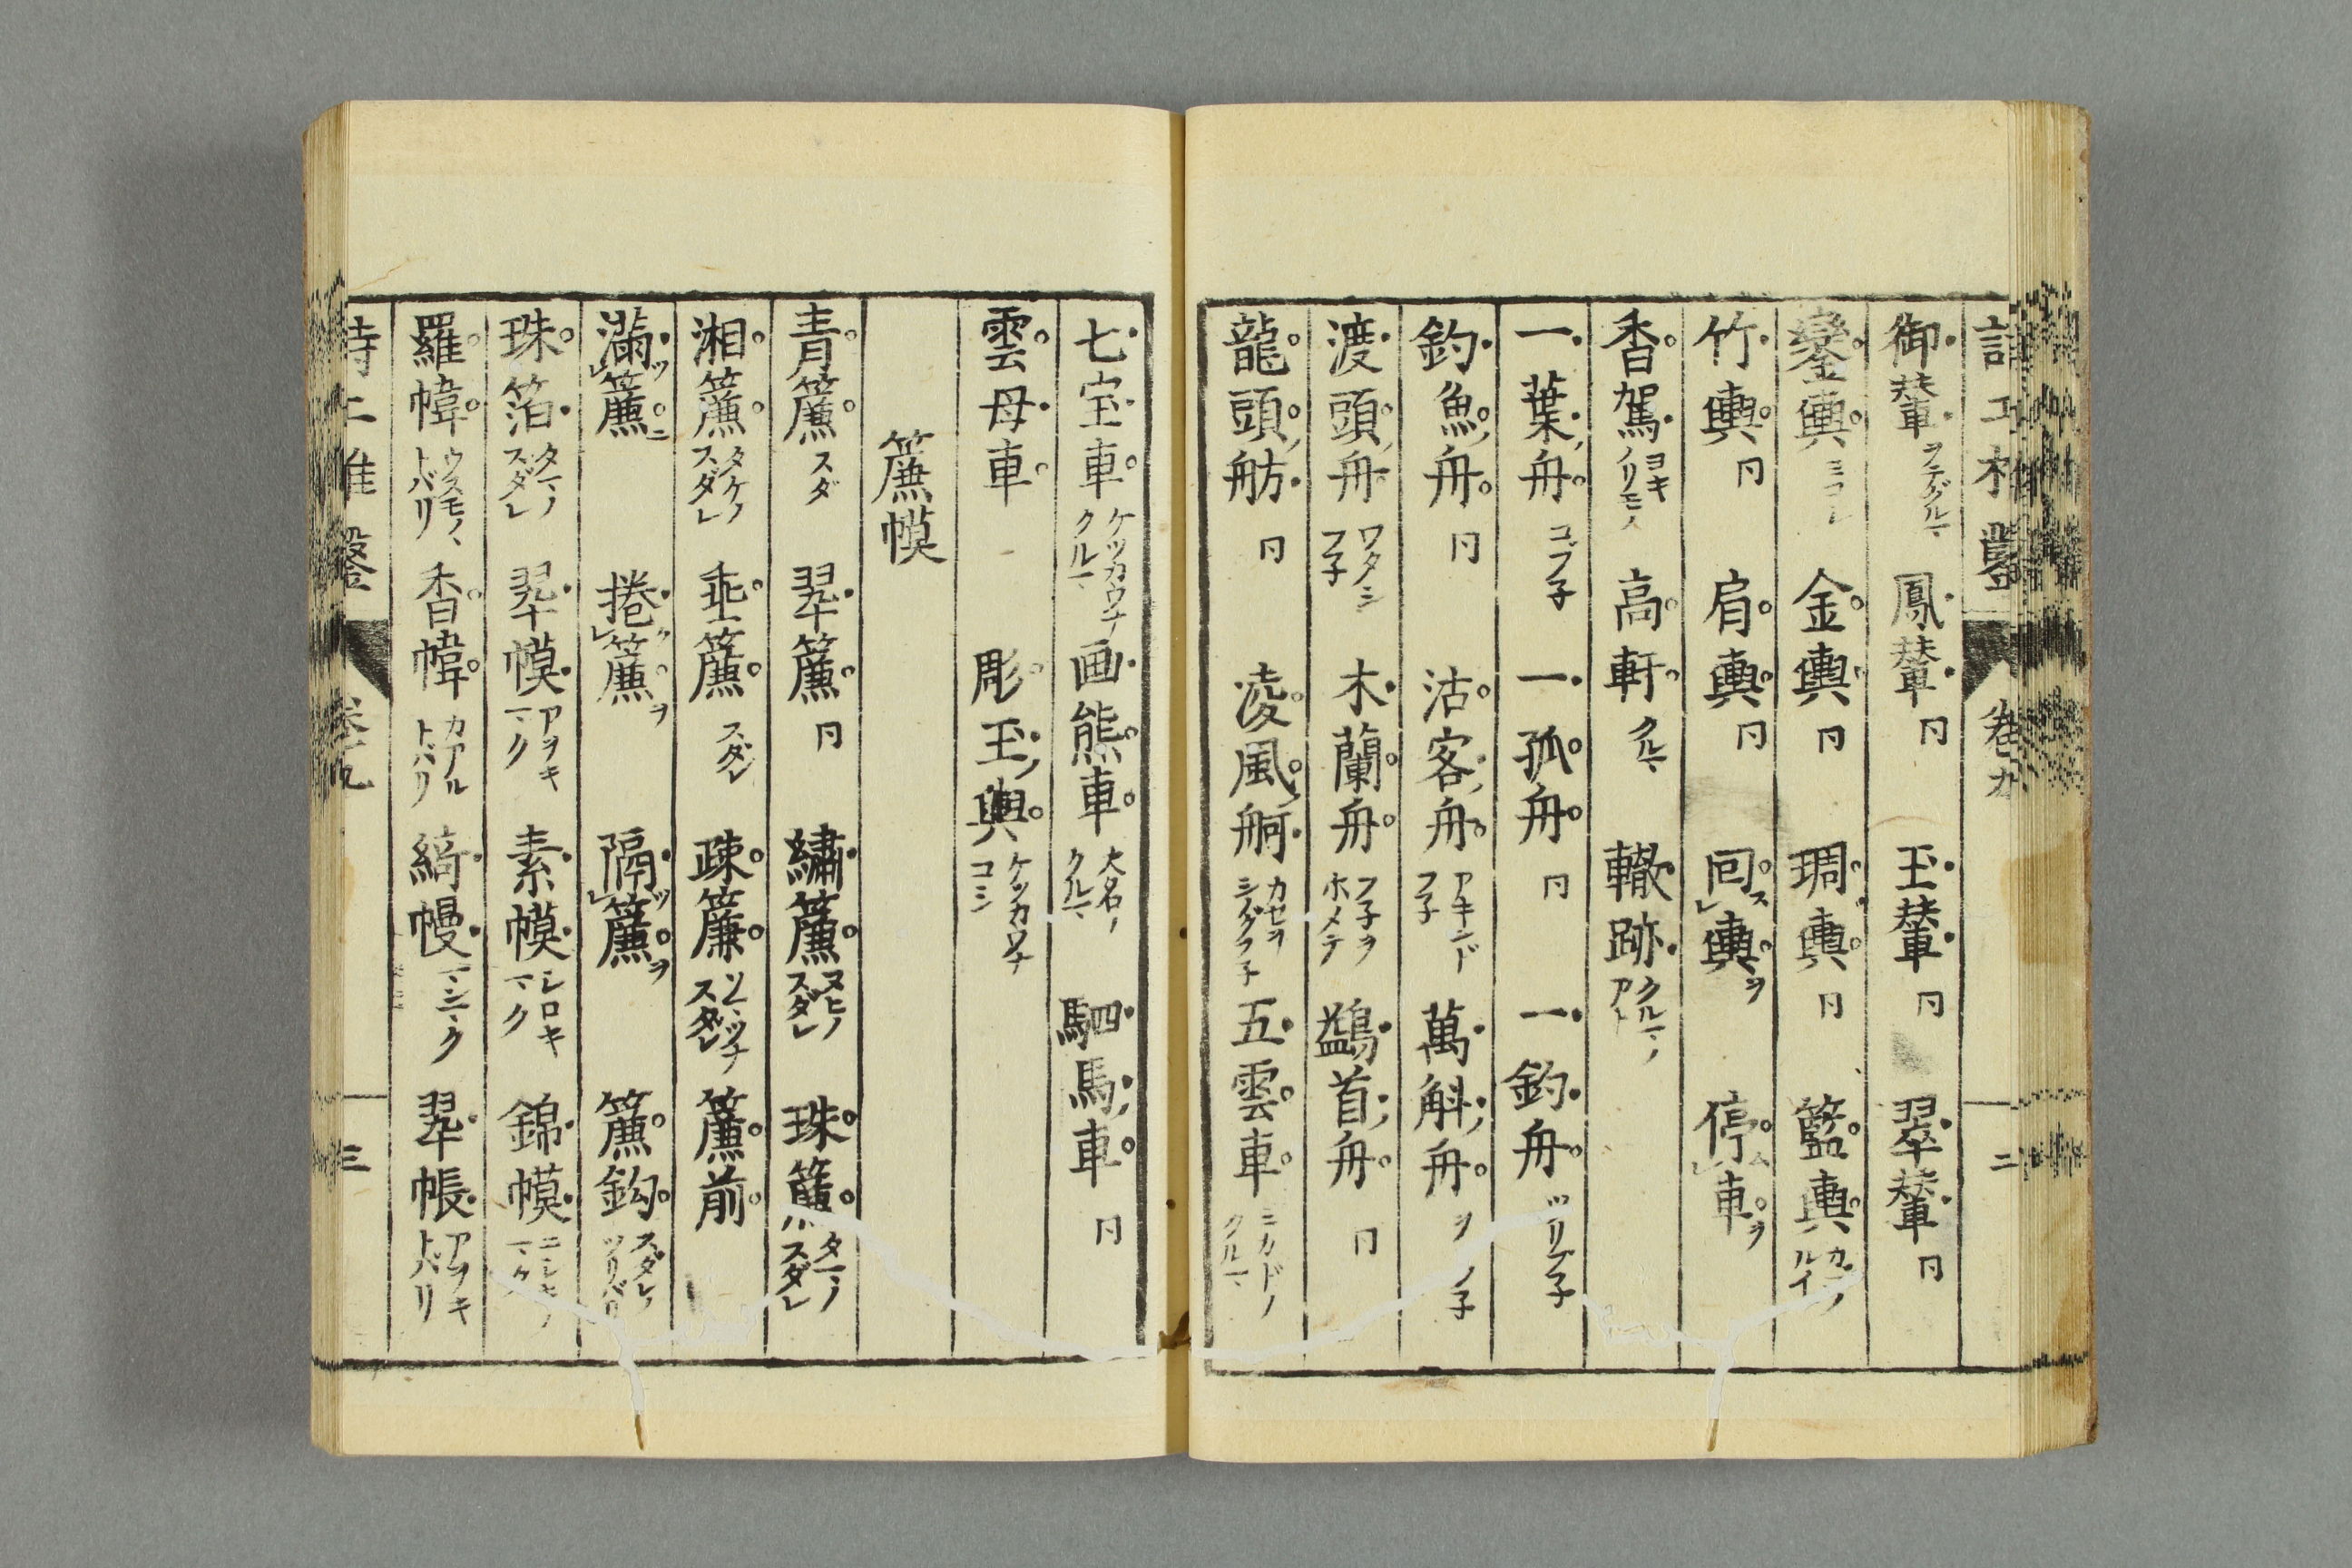 御輦 ヲテグルマ 鳳輦 冃 玉輦 冃 翠輦 冃
鑾輿 ミコシ 金輿 冃 琱輿 冃 籃輿 カゴノルイ
竹輿 冃 肩輿 冃 回ス㆑輿ヲ 停ム㆑車ヲ
香駕 ヨキノリモノ 高軒 クルマ 轍跡 クルマノアト
一葉ノ舟 コブ子 一孤舟 冃 一釣舟 ツリブ子
釣魚ノ舟 冃 沽客ノ舟 アキンドフ子 萬斛ノ舟
渡頭ノ舟 ワタシフ子 木蘭舟 フ子ヲホメテ 鷁首ノ舟 冃
龍頭ノ舫 冃 凌風ノ舸 カセヲシノグフ子 五雲車 ミカドノクルマ
七宝車 ケツカウナクルマ 画熊車 大名ノクルマ 駟馬ノ車 冃
雲母車 彫玉ノ輿 ケツカウナコシ
簾幙
青簾 スダ 翠簾 冃 繡簾 ヌヒノスダレ 珠簾 タマノスダレ
湘簾 タケノスダレ 垂簾 スダレ 疎簾 スダレ 簾前
滿ツ㆑簾ニ 捲ク㆑簾ヲ 隔ツ㆑簾ヲ 簾鈎 スダレノツリバリ
珠箔 タマノスダレ 翠幙 アヲキマク 素幙 シロキマク 錦幙 ニシキノマク
羅幃 ウスモノヽトバリ 香幃 カアルトバリ 綺幔 マンマク 翠帳 アヲキトバリ